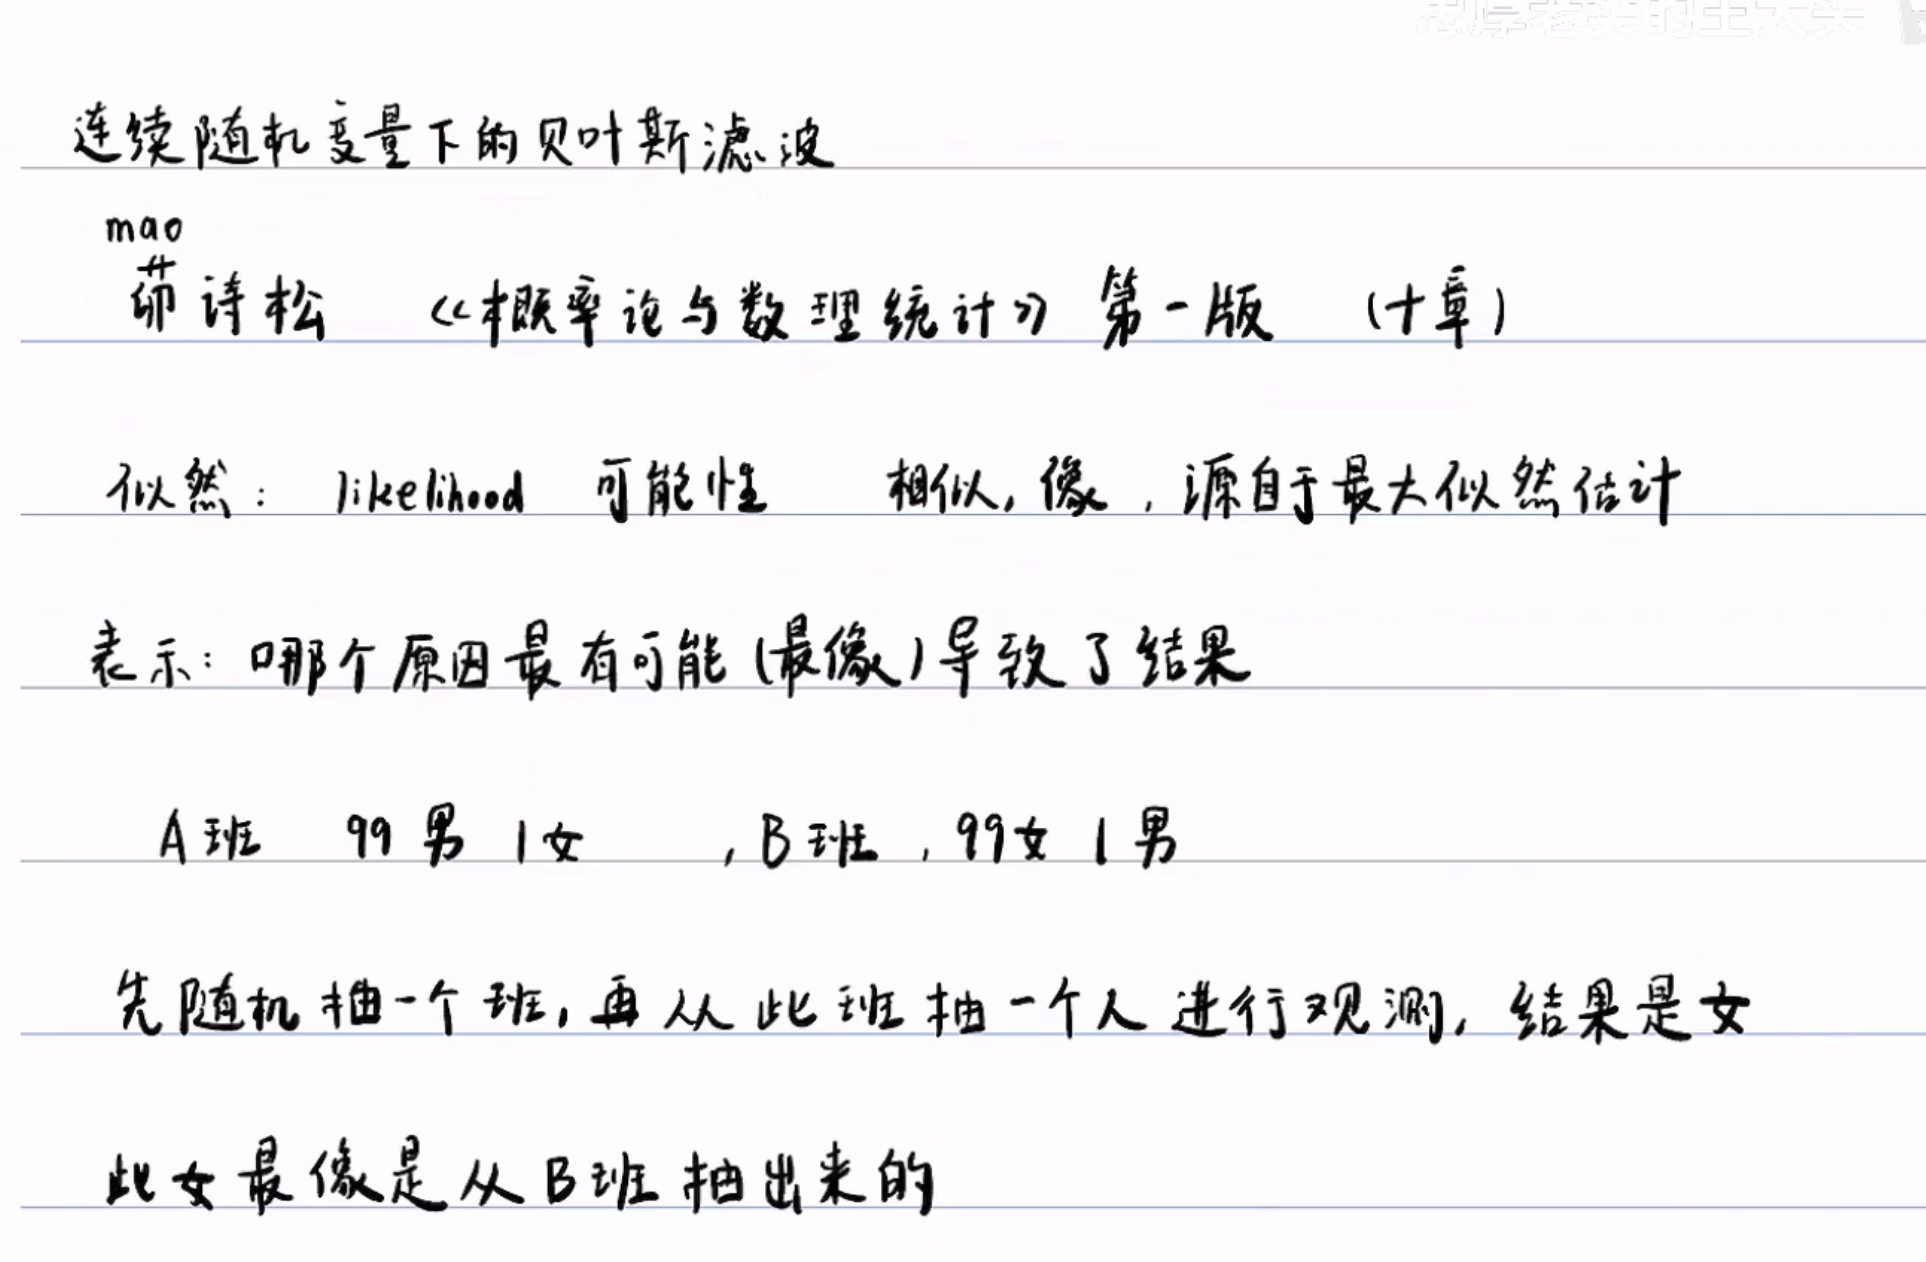 忠厚老实的王大头
连续随机变量下的贝叶斯滤波
mao
茆诗松 《概率论与数理统计》第一版 (十章)
似然: likelihood 可能性 相似, 像, 源自于最大似然估计
表示: 哪个原因最有可能(最像)导致了结果
A班 99男 1女 , B班, 99女 1男
先随机抽一个班, 再从此班抽一个人进行观测, 结果是女
此女最像是从B班抽出来的